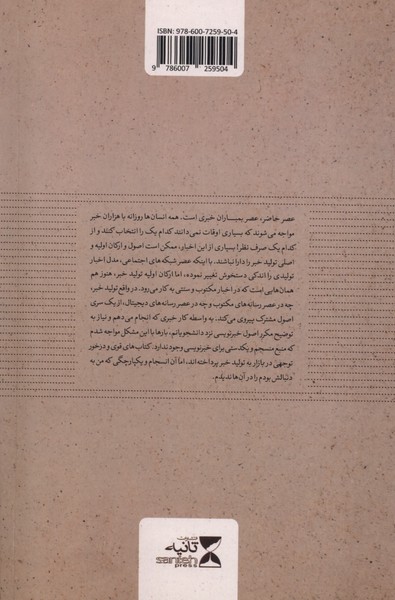 ISBN: 978-600-7259-50-4
9 786007 259504
عصر حاضر، عصر بمباران خبری است. همه انسان‌ها روزانه با هزاران خبر
مواجه می‌شوند که بسیاری اوقات نمی‌دانند کدام یک را انتخاب کنند و از
کدام یک صرف نظر! بسیاری از این اخبار، ممکن است اصول و ارکان اولیه و
اصلی تولید خبر را دارا نباشند. با اینکه عصر شبکه‌های اجتماعی، مدل اخبار
تولیدی را اندکی دستخوش تغییر نموده، اما ارکان اولیه تولید خبر، هنوز هم
همان‌هایی است که در اخبار مکتوب و سنتی به کار می‌رود. در واقع تولید خبر،
چه در عصر رسانه‌های مکتوب و چه در عصر رسانه‌های دیجیتال، از یک سری
اصول مشترک پیروی می‌کند. به واسطه کار خبری که انجام می‌دهم و نیاز به
توضیح مکرر اصول خبرنویسی نزد دانشجویانم، بارها با این مشکل مواجه شدم
که منبع منسجم و یکدستی برای خبرنویسی وجود ندارد. کتاب‌های قوی و درخور
توجهی در بازار به تولید خبر پرداخته‌اند، اما آن انسجام و یکپارچگی که من به
دنبالش بودم را در آن‌ها ندیدم.
انتشارات
ثانیه
saniteh
press